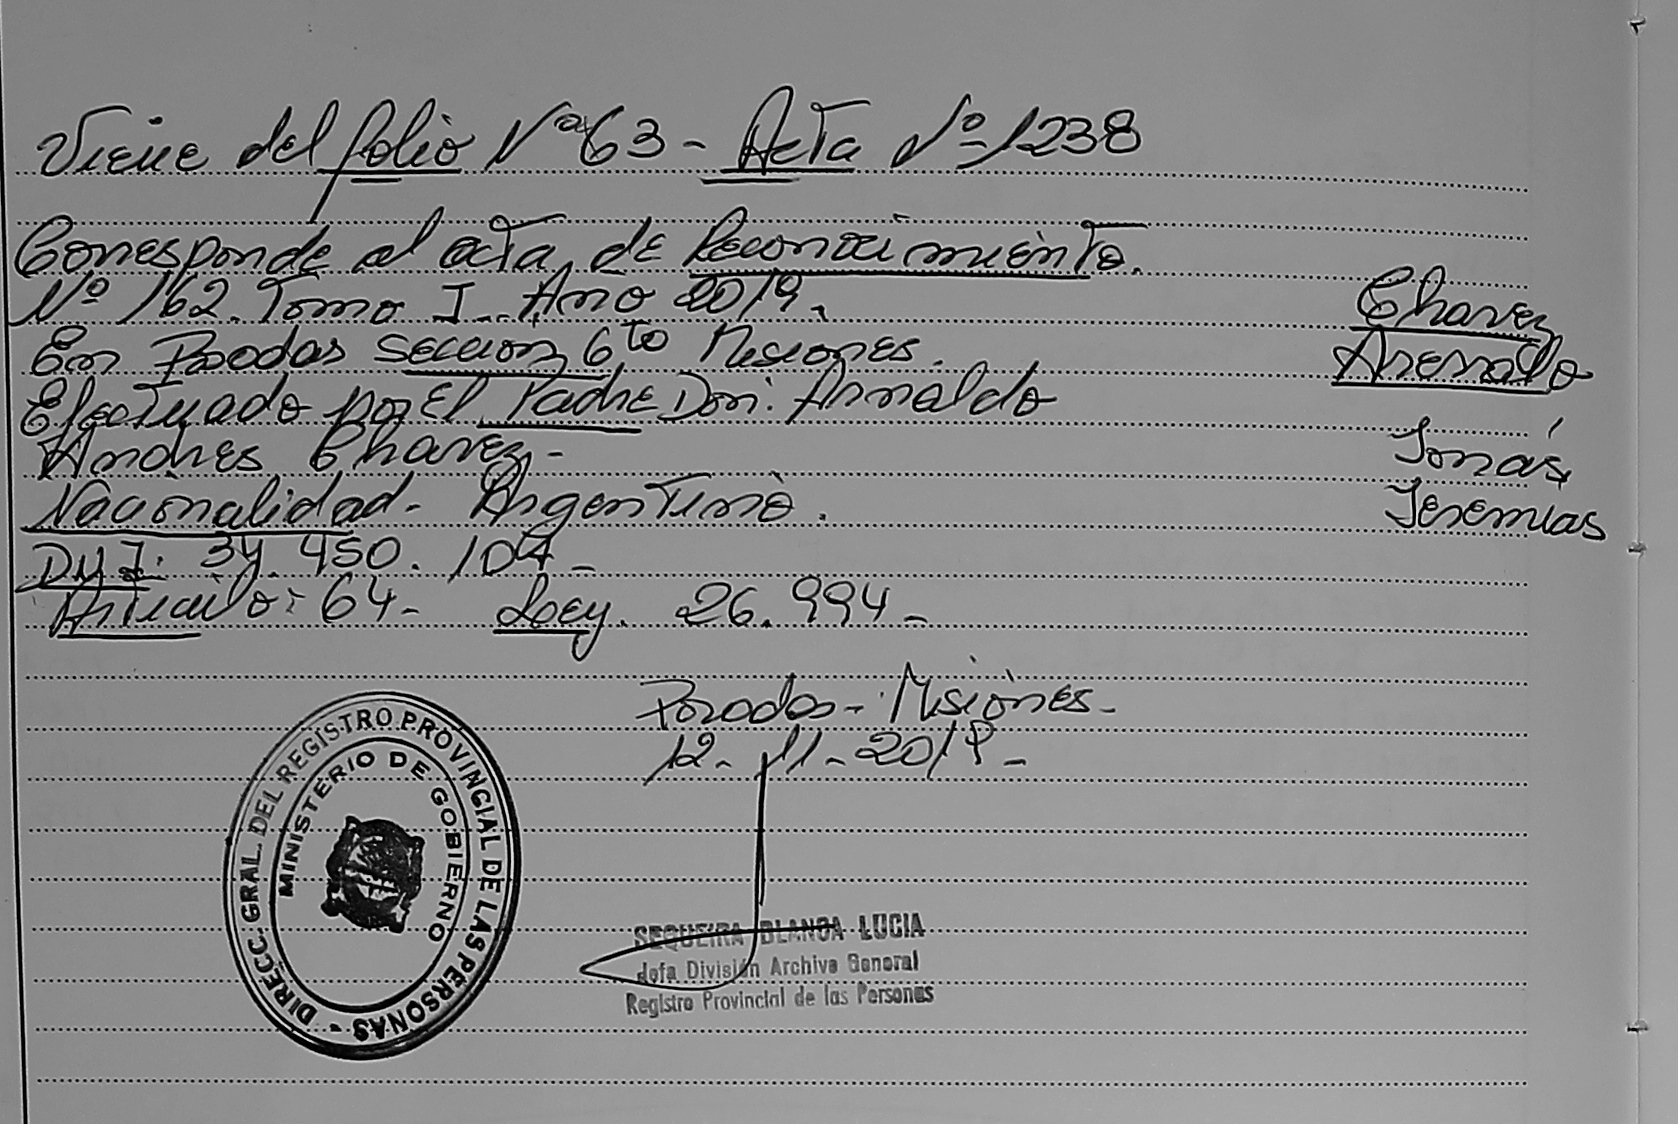 Viene del folio Nº 63 - Acta Nº 1238
Corresponde al acta de Reconocimiento.
Nº 162. Tomo I. Año 2019.
En Posadas seccion 6to Misiones.
Efectuado por El Padre Don: Arnaldo
Andres Chavez -
Nacionalidad - Argentino.
DNI: 34.450.104 -
Articulo: 64 - Ley. 26.994 -
Chavez
Jonás
Jeremías
Posadas - Misiones -
12 - 11 - 2019 -
DIRECC. GRAL. DEL REGISTRO PROVINCIAL DE LAS PERSONAS -
MINISTERIO DE GOBIERNO
SEQUEIRA BLANCA LUCIA
Jefa División Archivo General
Registro Provincial de las Personas